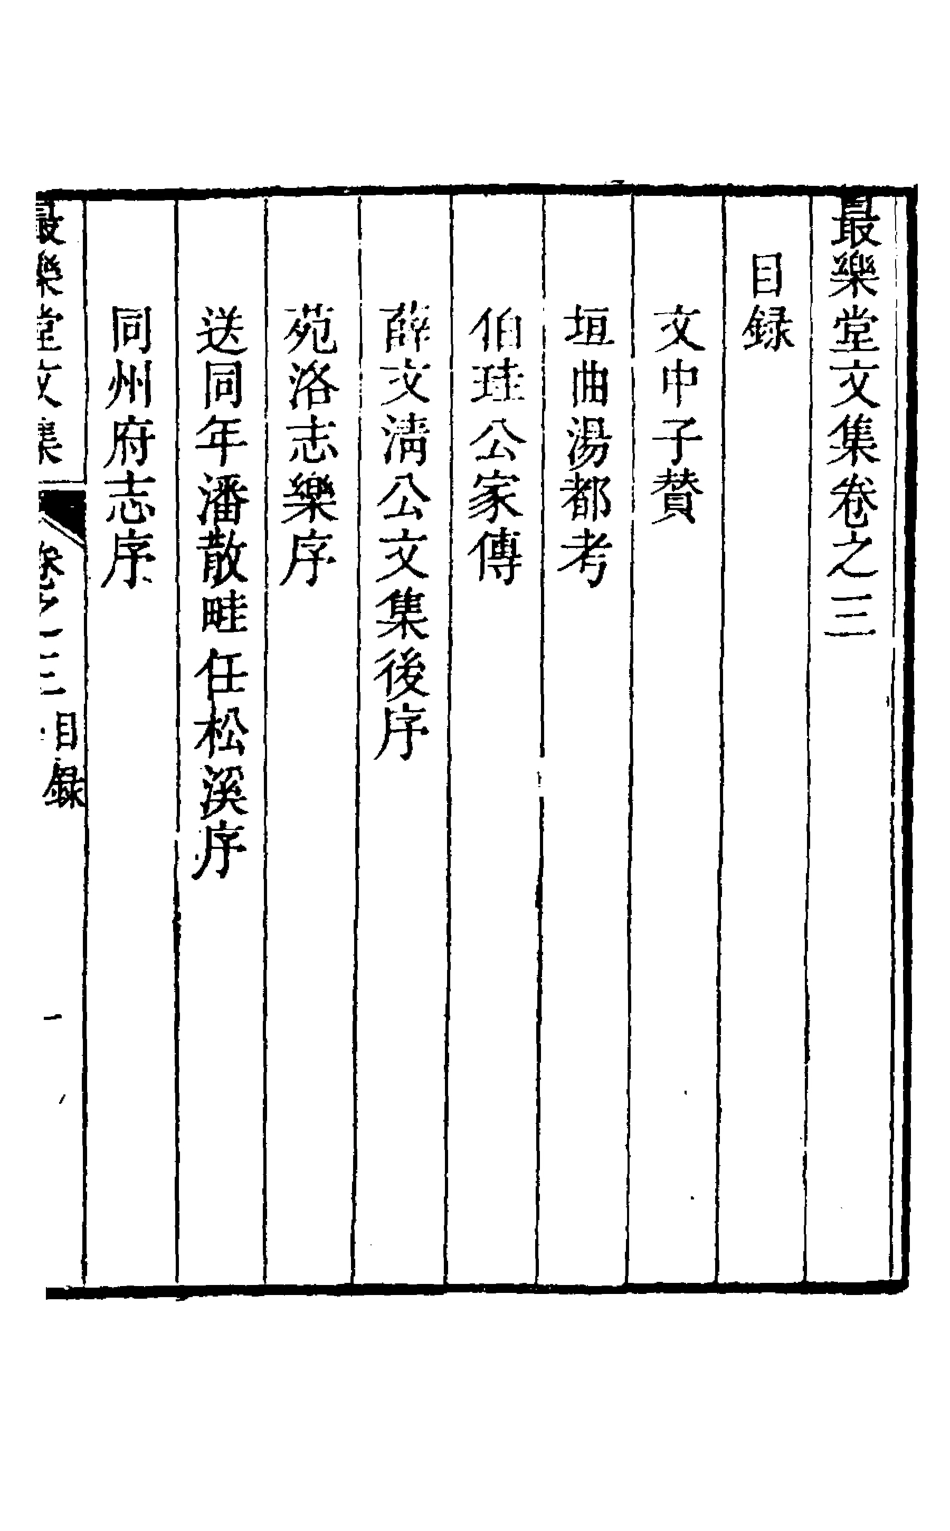 最樂堂文集卷之三
目録
文中子贊
垣曲湯都考
伯珪公家傳
薛文淸公文集後序
苑洛志樂序
送同年潘散畦任松溪序
同州府志序
最樂堂文集
卷之三
目錄
一